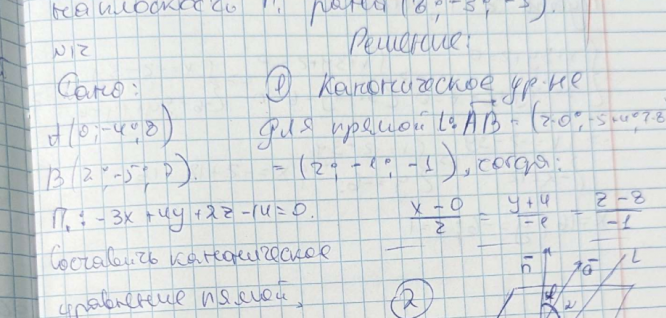 на плоскость П, равна (6; -5; -5).
N12 Решение:
Дано: ① Каноническое ур-не
A(0; -4; 8) для прямой L: AB = (2-0; -5+4; 7-8)
B(2; -5; 7). = (2; -1; -1), тогда:
П₁: -3x+4y+2z-14=0. x-0/2 = y+4/-1 = z-8/-1
Составить каноническое
уравнение прямой, ② n a L